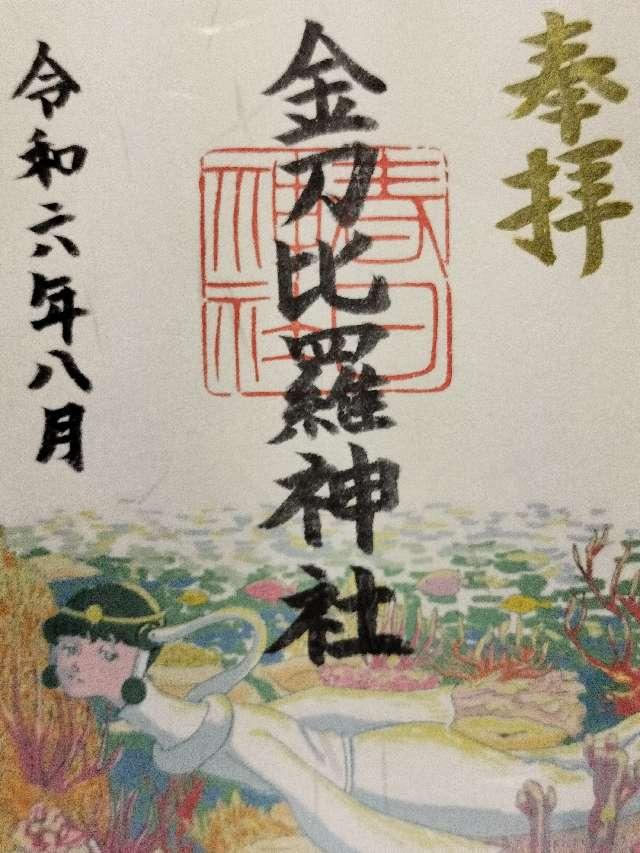 奉拝
金刀比羅神社
令和六年八月